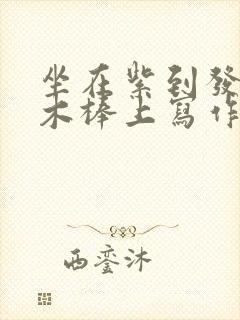 坐在紫到發
木棒上寫作
西窗沐